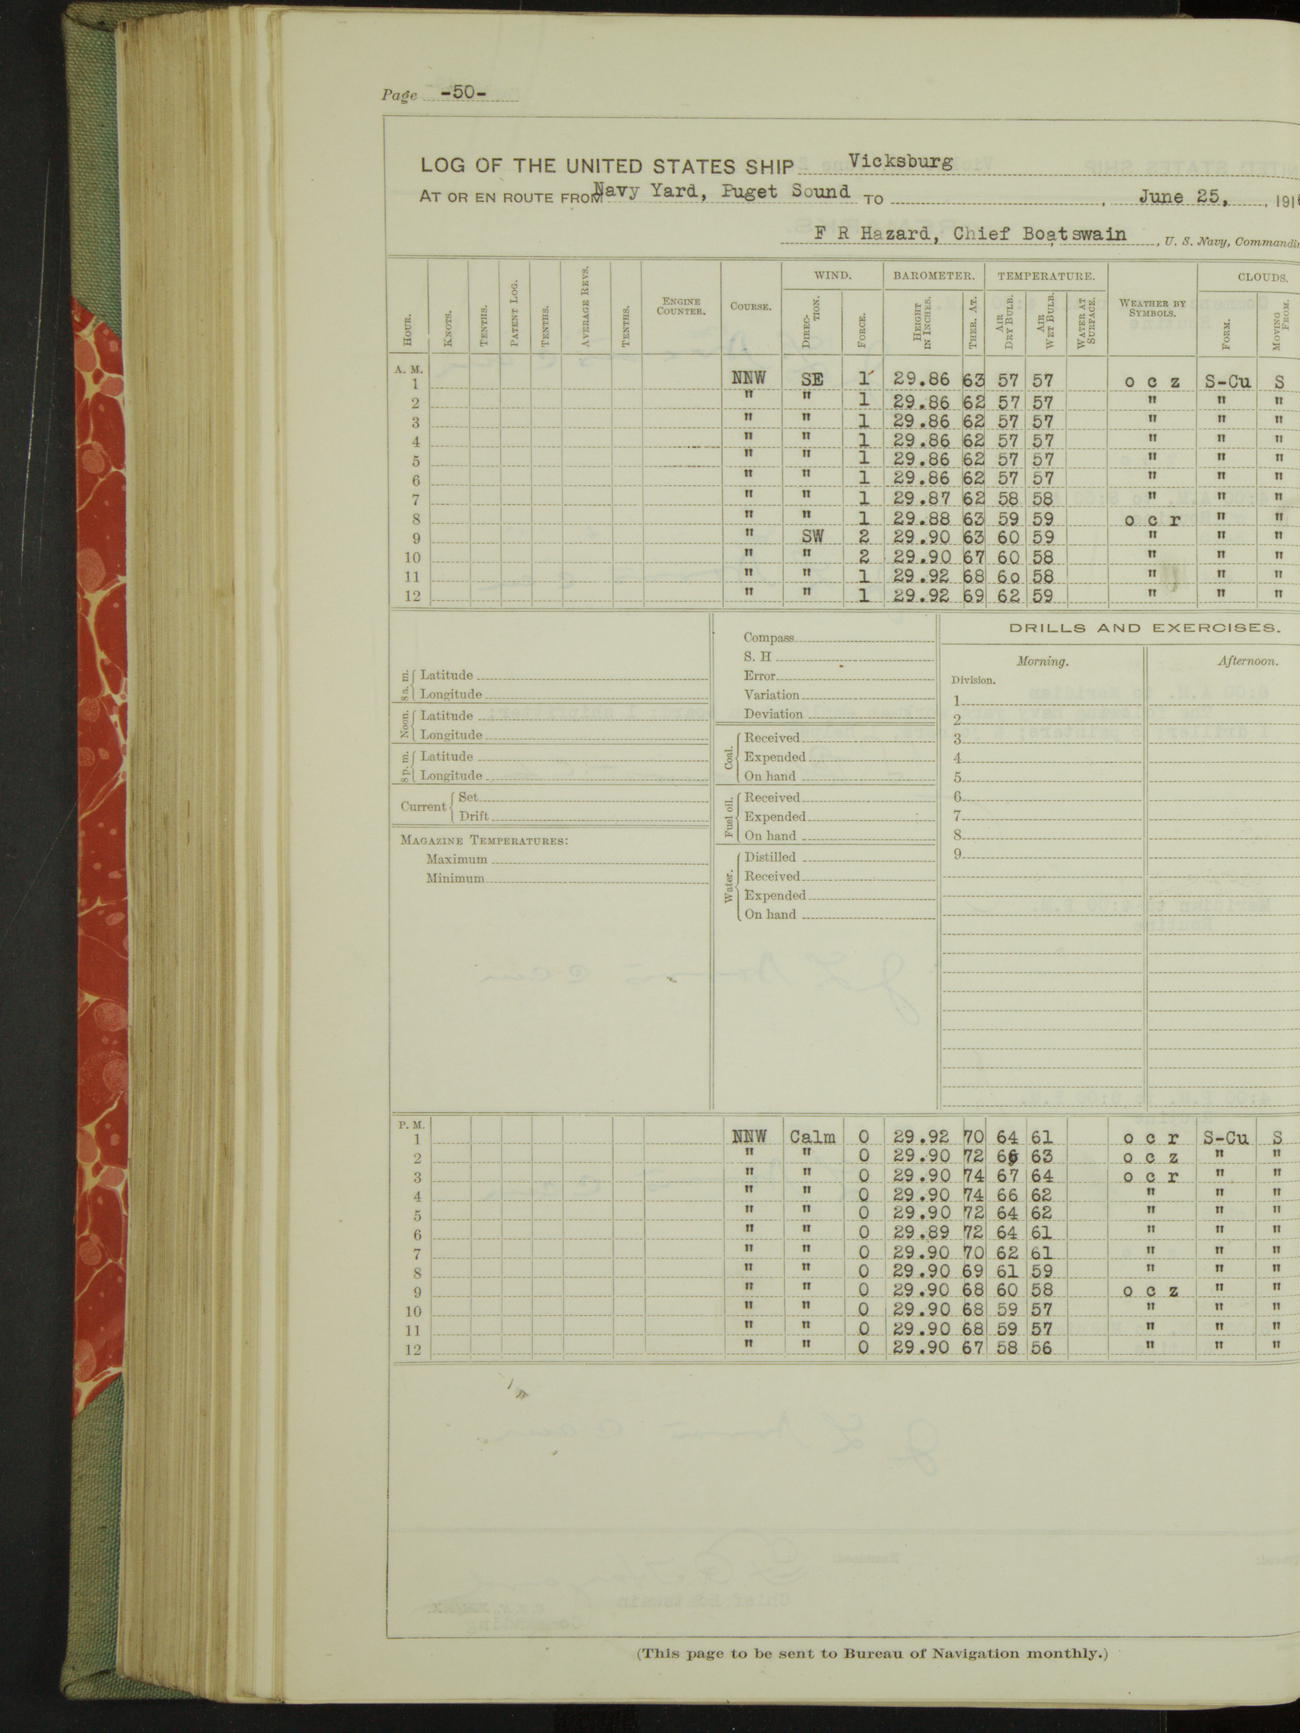 Page -50-
LOG OF THE UNITED STATES SHIP Vicksburg
AT OR EN ROUTE FROM Navy Yard, Puget Sound TO , June 25, , 191
F R Hazard, Chief Boatswain , U. S. Navy, Commandin
HOUR. KNOTS. TENTHS. PATENT LOG. TENTHS. AVERAGE REVS. TENTHS. ENGINE COUNTER. COURSE. WIND. DIRECTION. FORCE. BAROMETER. HEIGHT IN INCHES. THER. AT. TEMPERATURE. AIR DRY BULB. AIR WET BULB. WATER AT SURFACE. WEATHER BY SYMBOLS. CLOUDS. FORM. MOVING FROM.
A. M.
1 NNW SE 1 29.86 63 57 57 o c z S-Cu S
2 " " 1 29.86 62 57 57 " " "
3 " " 1 29.86 62 57 57 " " "
4 " " 1 29.86 62 57 57 " " "
5 " " 1 29.86 62 57 57 " " "
6 " " 1 29.86 62 57 57 " " "
7 " " 1 29.87 62 58 58 " " "
8 " " 1 29.88 63 59 59 o c r " "
9 " SW 2 29.90 63 60 59 " " "
10 " " 2 29.90 67 60 58 " " "
11 " " 1 29.92 68 60 58 " " "
12 " " 1 29.92 69 62 59 " " "
8 a. m. Latitude
Longitude
Noon. Latitude
Longitude
8 p. m. Latitude
Longitude
Current Set
Drift
MAGAZINE TEMPERATURES:
Maximum
Minimum
Compass
S. H
Error
Variation
Deviation
Coal. Received
Expended
On hand
Fuel oil. Received
Expended
On hand
Water. Distilled
Received
Expended
On hand
DRILLS AND EXERCISES.
Morning. Afternoon.
Division.
1
2
3
4
5
6
7
8
9
P. M.
1 NNW Calm 0 29.92 70 64 61 o c r S-Cu S
2 " " 0 29.90 72 66 63 o c z " "
3 " " 0 29.90 74 67 64 o c r " "
4 " " 0 29.90 74 66 62 " " "
5 " " 0 29.90 72 64 62 " " "
6 " " 0 29.89 72 64 61 " " "
7 " " 0 29.90 70 62 61 " " "
8 " " 0 29.90 69 61 59 " " "
9 " " 0 29.90 68 60 58 o c z " "
10 " " 0 29.90 68 59 57 " " "
11 " " 0 29.90 68 59 57 " " "
12 " " 0 29.90 67 58 56 " " "
(This page to be sent to Bureau of Navigation monthly.)